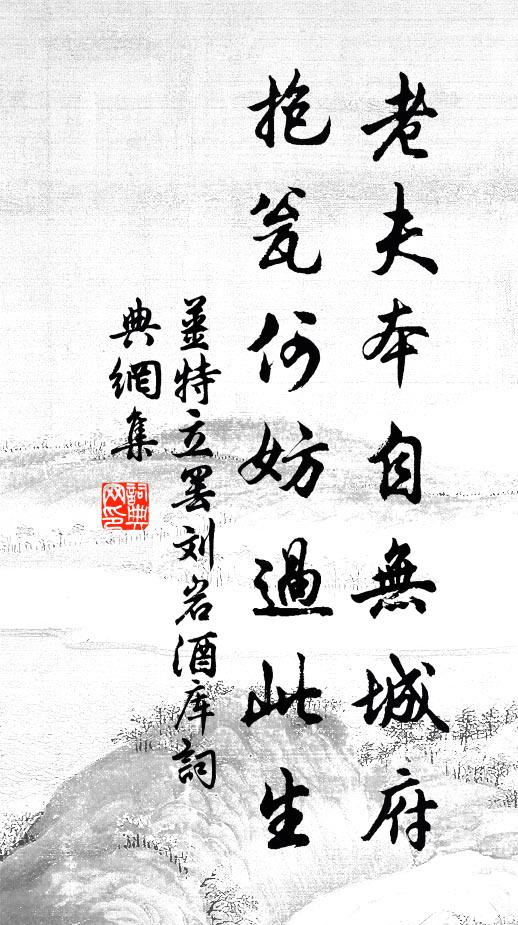 老夫本自無城府
抱瓮何妨過此生
姜特立罢刘岩酒库詞
典網集
詞典网印